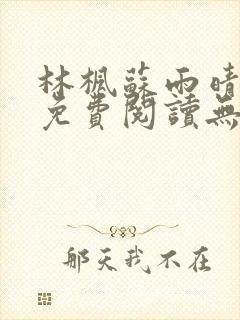 林楓蘇雨晴
免費閱讀無
那天我不在